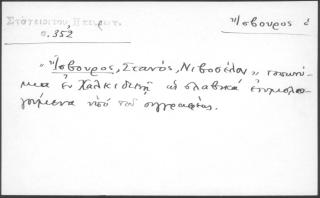 Στογειρίτου Πετεων.
σ.352
Ἴσβουρος ὁ
"Ἴσβουρος, Στανός, Νιβοσέλον" τοπωνύ-
μια ἐν Χαλκιδικῇ ὡς σλαβικὰ ἐτυμολο-
γούμενα ὑπὸ τοῦ συγγραφέως.